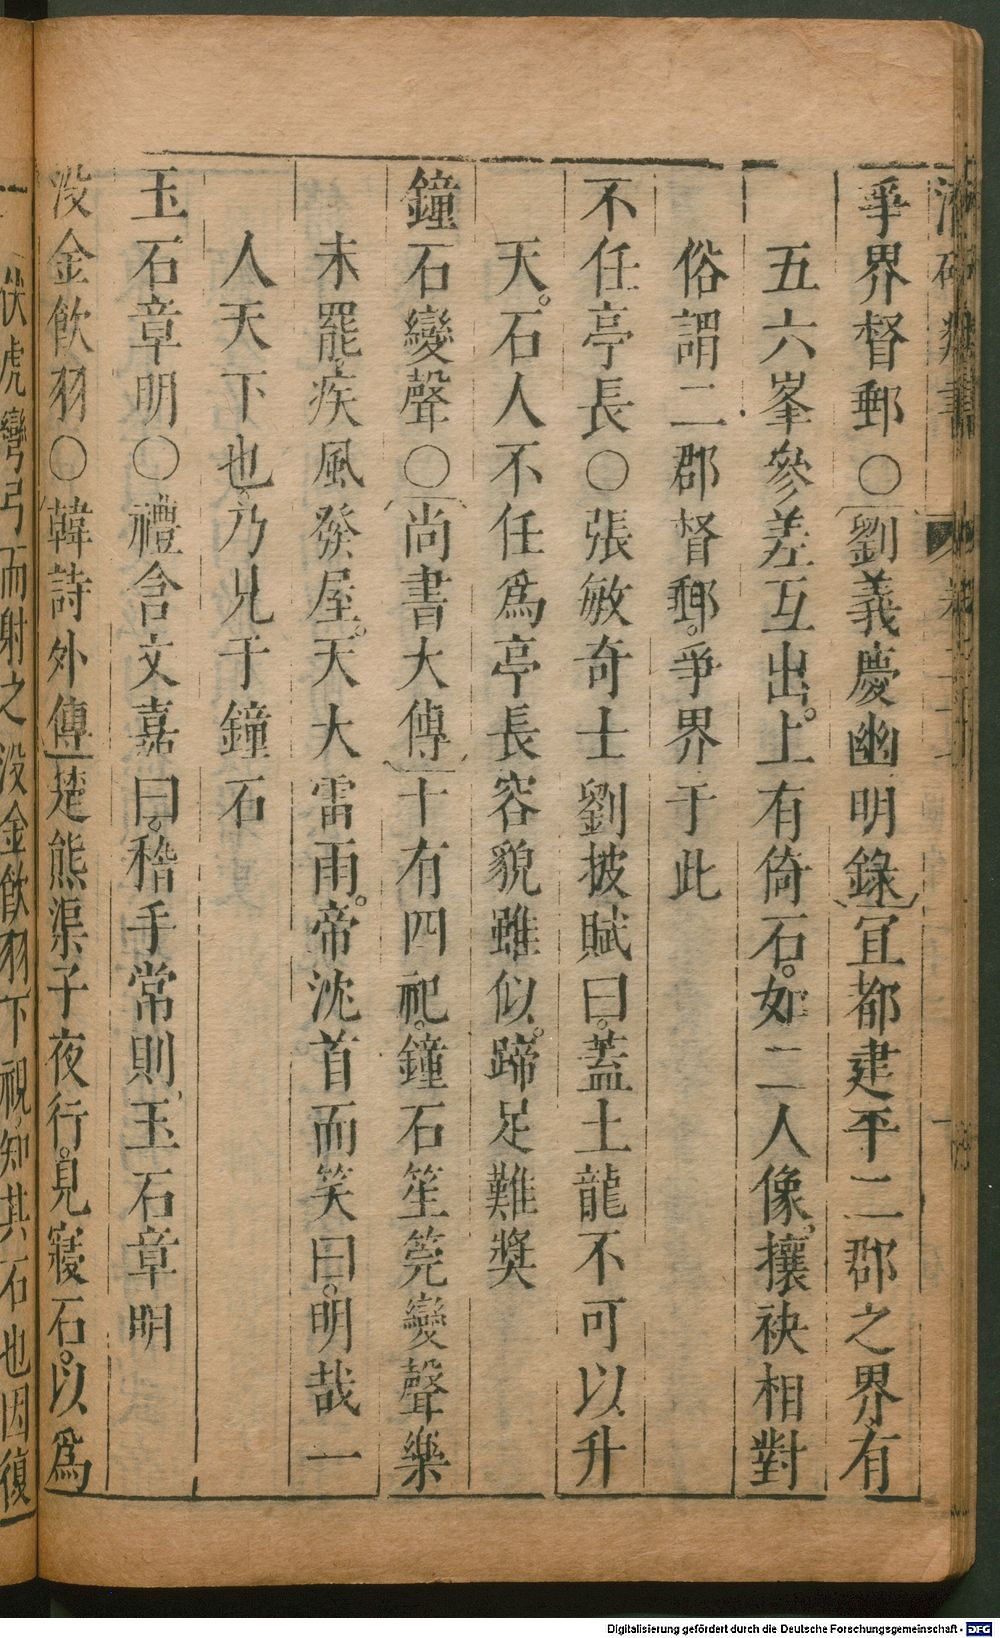 爭界督郵○劉義慶幽明錄冝都建平二郡之界有
五六峯參差互出上有倚石如二人像攘袂相對
俗謂二郡督郵爭界于此
不任亭長○張敏奇士劉披賦曰蓋土龍不可以升
天石人不任爲亭長容貌雖似蹄足難奬
鐘石變聲○尚書大傳十有四祀鐘石笙筦變聲樂
未罷疾風發屋天大雷雨帝沈首而笑曰明哉一
人天下也乃見于鐘石
玉石章明○禮含文嘉曰稽手常則玉石章明
没金飲羽○韓詩外傳楚熊渠子夜行見寢石以爲
伏虎彎弓而射之没金飲羽下視知其石也因復
Digitalisierung gefördert durch die Deutsche Forschungsgemeinschaft - DFG